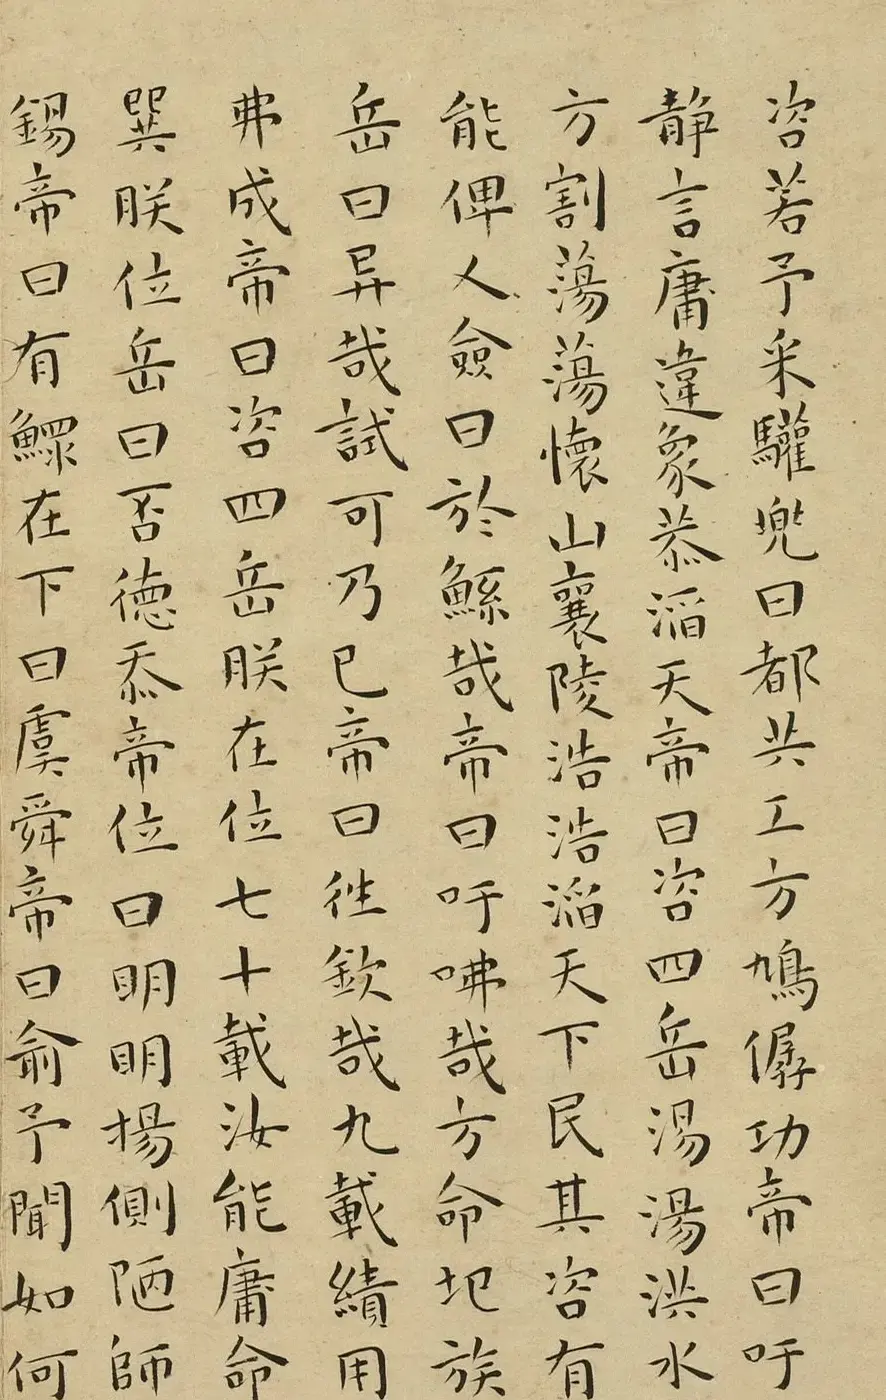 咨若予采驩兜曰都共工方鳩僝功帝曰吁
静言庸違象恭滔天帝曰咨四岳湯湯洪水
方割蕩蕩懷山襄陵浩浩滔天下民其咨有
能俾乂僉曰於鯀哉帝曰吁咈哉方命圮族
岳曰异哉試可乃已帝曰往欽哉九載績用
弗成帝曰咨四岳朕在位七十載汝能庸命
巽朕位岳曰否德忝帝位曰明明揚側陋師
錫帝曰有鰥在下曰虞舜帝曰俞予聞如何